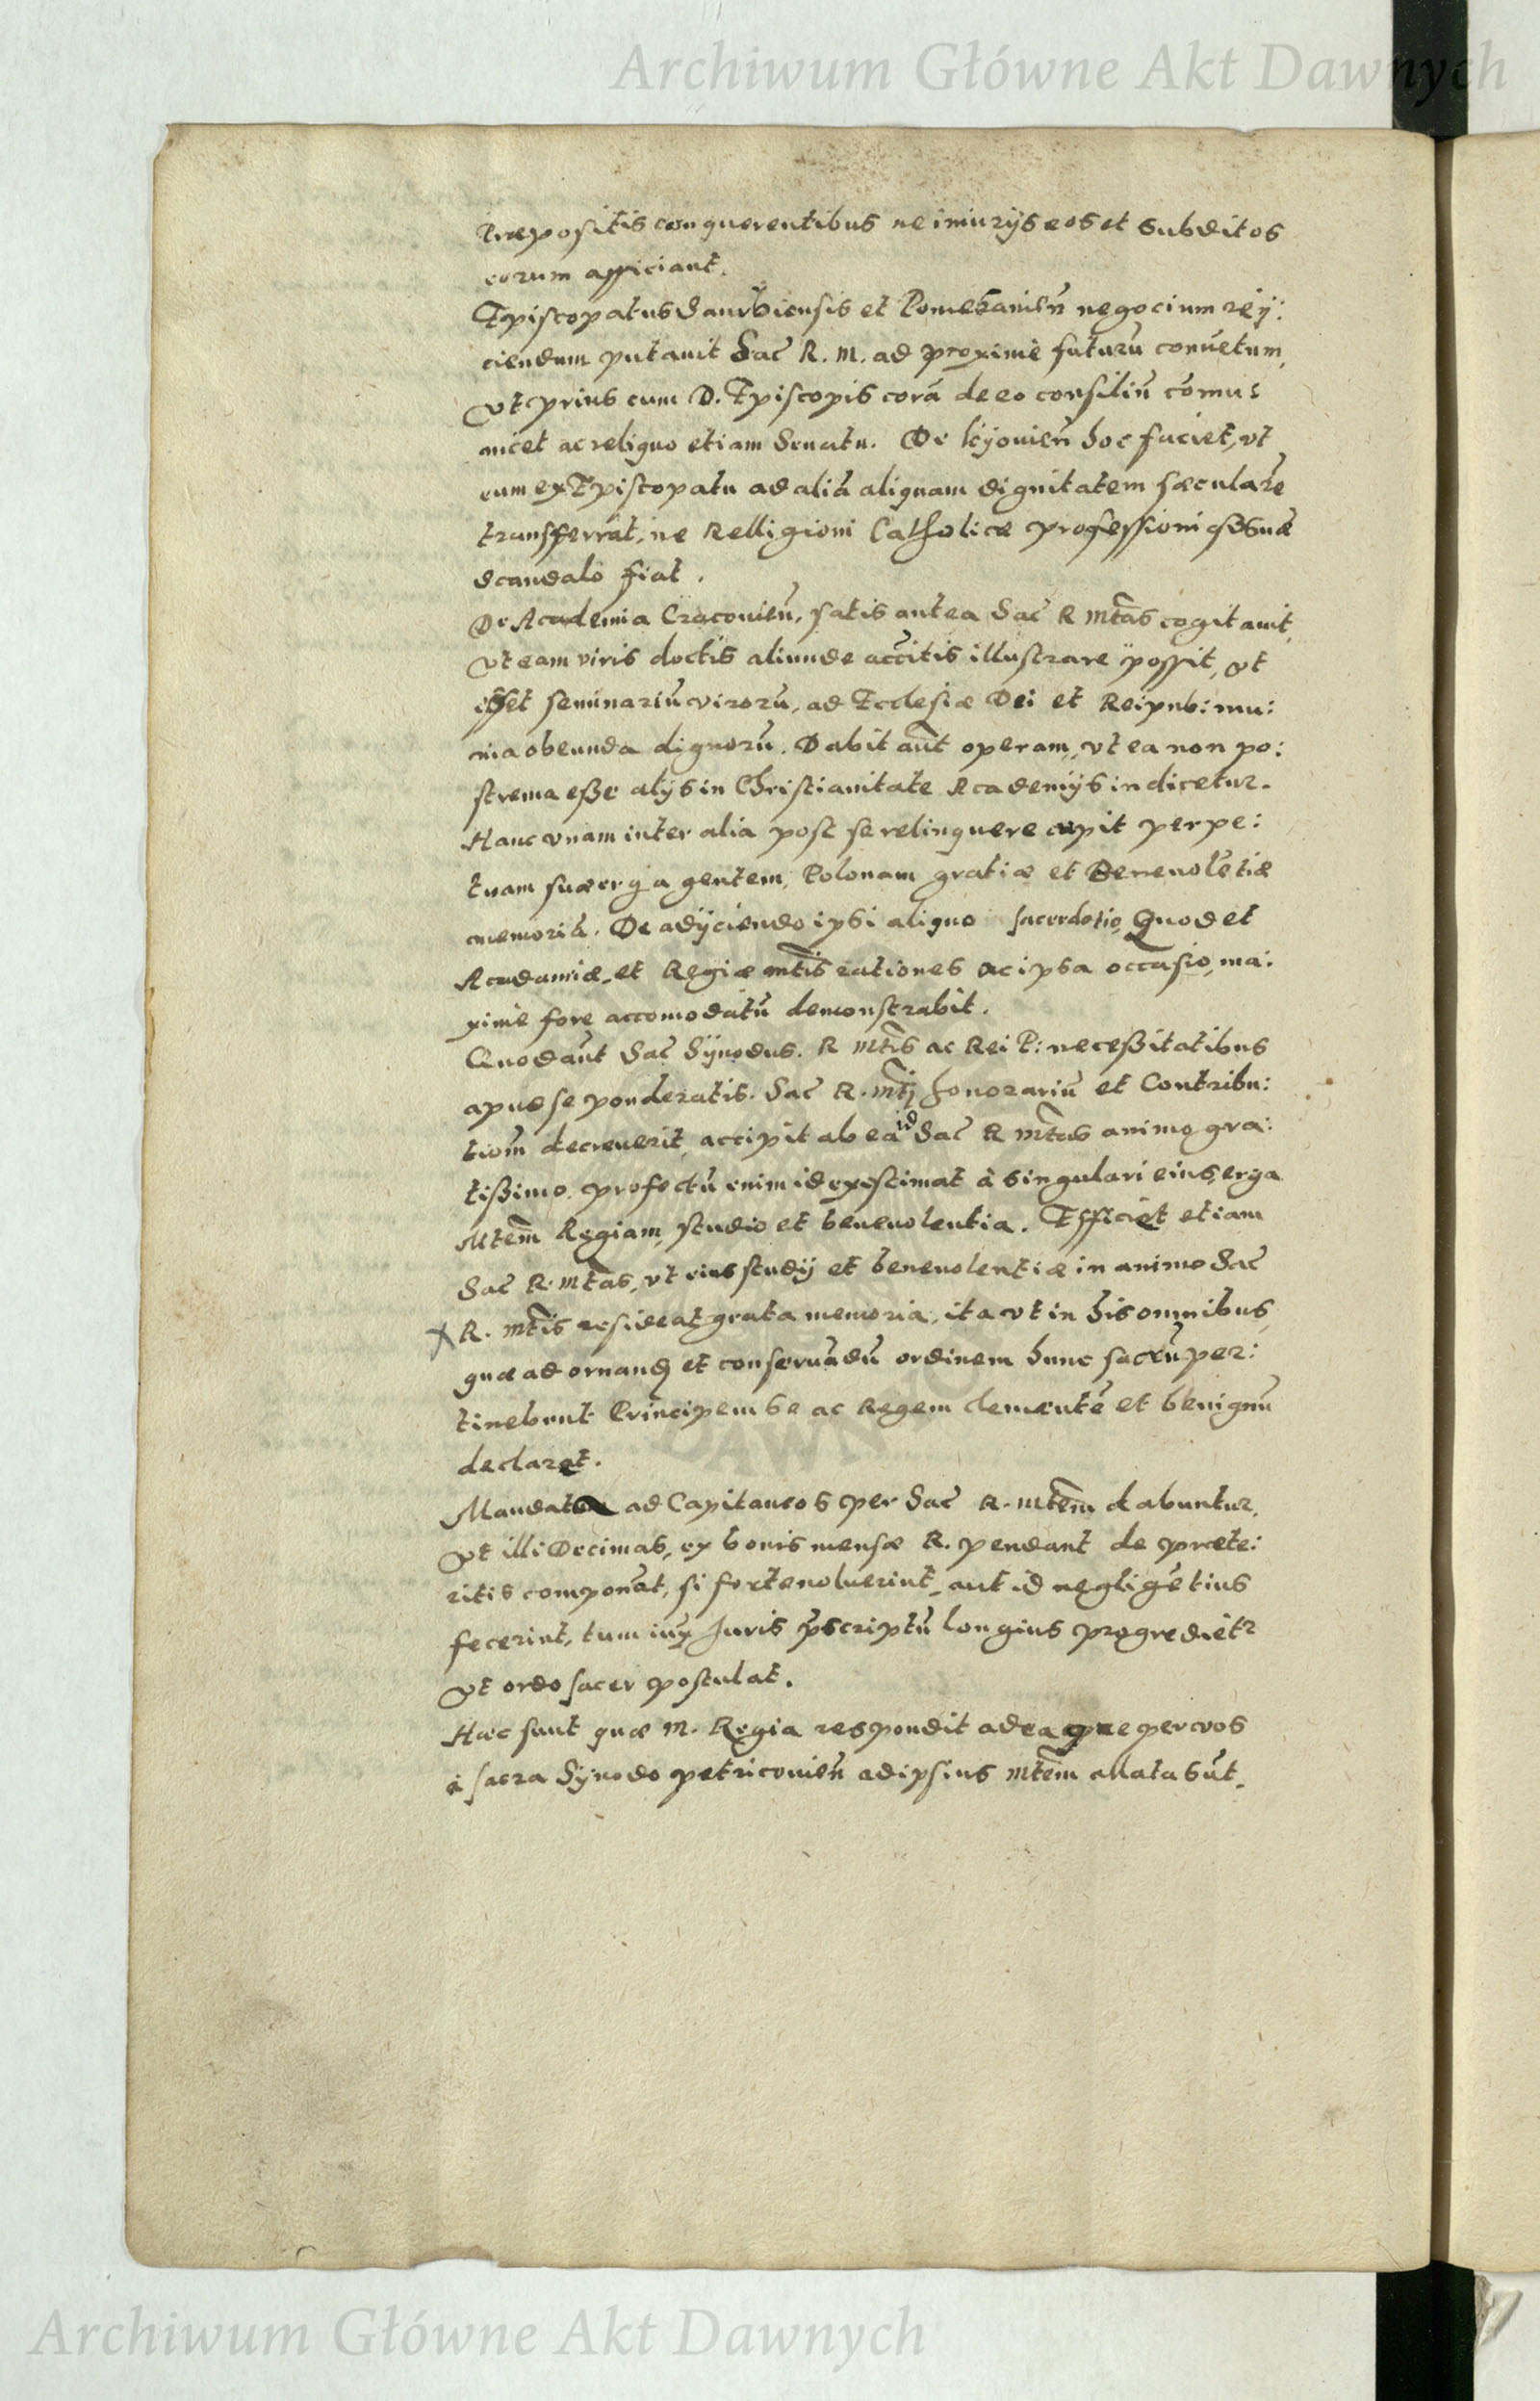 Archiwum Główne Akt Dawnych
Præpositis conquerentibus ne iniurijs eos et subditos
eorum afficiant.
Episcopatus Sambiensis et Pomezanieñ negocium reij:
ciendum putauit Sac R. M. ad proxime futurũ conuẽtum,
vt prius cum D. Episcopis corã de eo consiliũ cõmu:
nicet ac reliquo etiam Senatu. De Kijouieñ hoc faciet, vt
eum ex Episcopatu ad aliã aliquam dignitatem sæcularẽ
transferrãt, ne Relligioni Catholicæ professioniq; suæ
scandalo fiat.
De Academia Cracouieñ, satis antea Sac R Mtas cogitauit,
vt eam viris doctis aliunde accitis illustrare possit, vt
esset seminariũ virorũ, ad Ecclesiæ Dei et Reipub: mu:
nia obeunda dignorũ. Dabit aũt operam, vt ea non po:
strema eße alijs in Christianitate Academijs indicetur.
Hanc vnam inter alia post se relinquere cupit perpe:
tuam suæ erga gentem Polonam gratiæ et Beneuolẽtiæ
memoriã. De adijciendo ipsi aliquo sacerdotio, Quod et
Academiæ et Regiæ Mtis rationes ac ipsa occasio, ma:
xime fore accomodatũ demonstrabit.
Quod aũt Sac Sijnodus. R Mtis ac Rei P: neceßitatibus
apud se ponderatis. Sac R. Mtj honorariũ et Contribu:
tiom decreuerit, accipit ab ea id Sac R Mtas animo gra:
tißimo. profectũ enim id existimat à singulari eius erga
Mtem Regiam, studio et beneuolentia. Efficiet etiam
Sac R. Mtas, vt eius studij et beneuolentiæ in animo Sac
R. Mtis resideat grata memoria, ita vt in his omnibus,
quæ ad ornand et conseruãdũ ordinem hunc sacrũ per:
tinebunt Principem se ac Regem clementẽ et benignũ
declaret.
Mandata ad Capitaneos per Sac R. Mtem dabuntur,
vt illi Decimas, ex bonis mensæ R. pendant de præte:
ritis componãt, si forte noluerint, aut id negligẽtius
fecerint, tum iux Juris p̃scriptũ longius progredietr
vt ordo sacer postulat.
Hæc sunt quæ M. Regia respondit ad ea quæ per vos
à sacra Sijnodo petricouieñ ad ipsius Mtem allata sũt.
Archiwum Główne Akt Dawnych